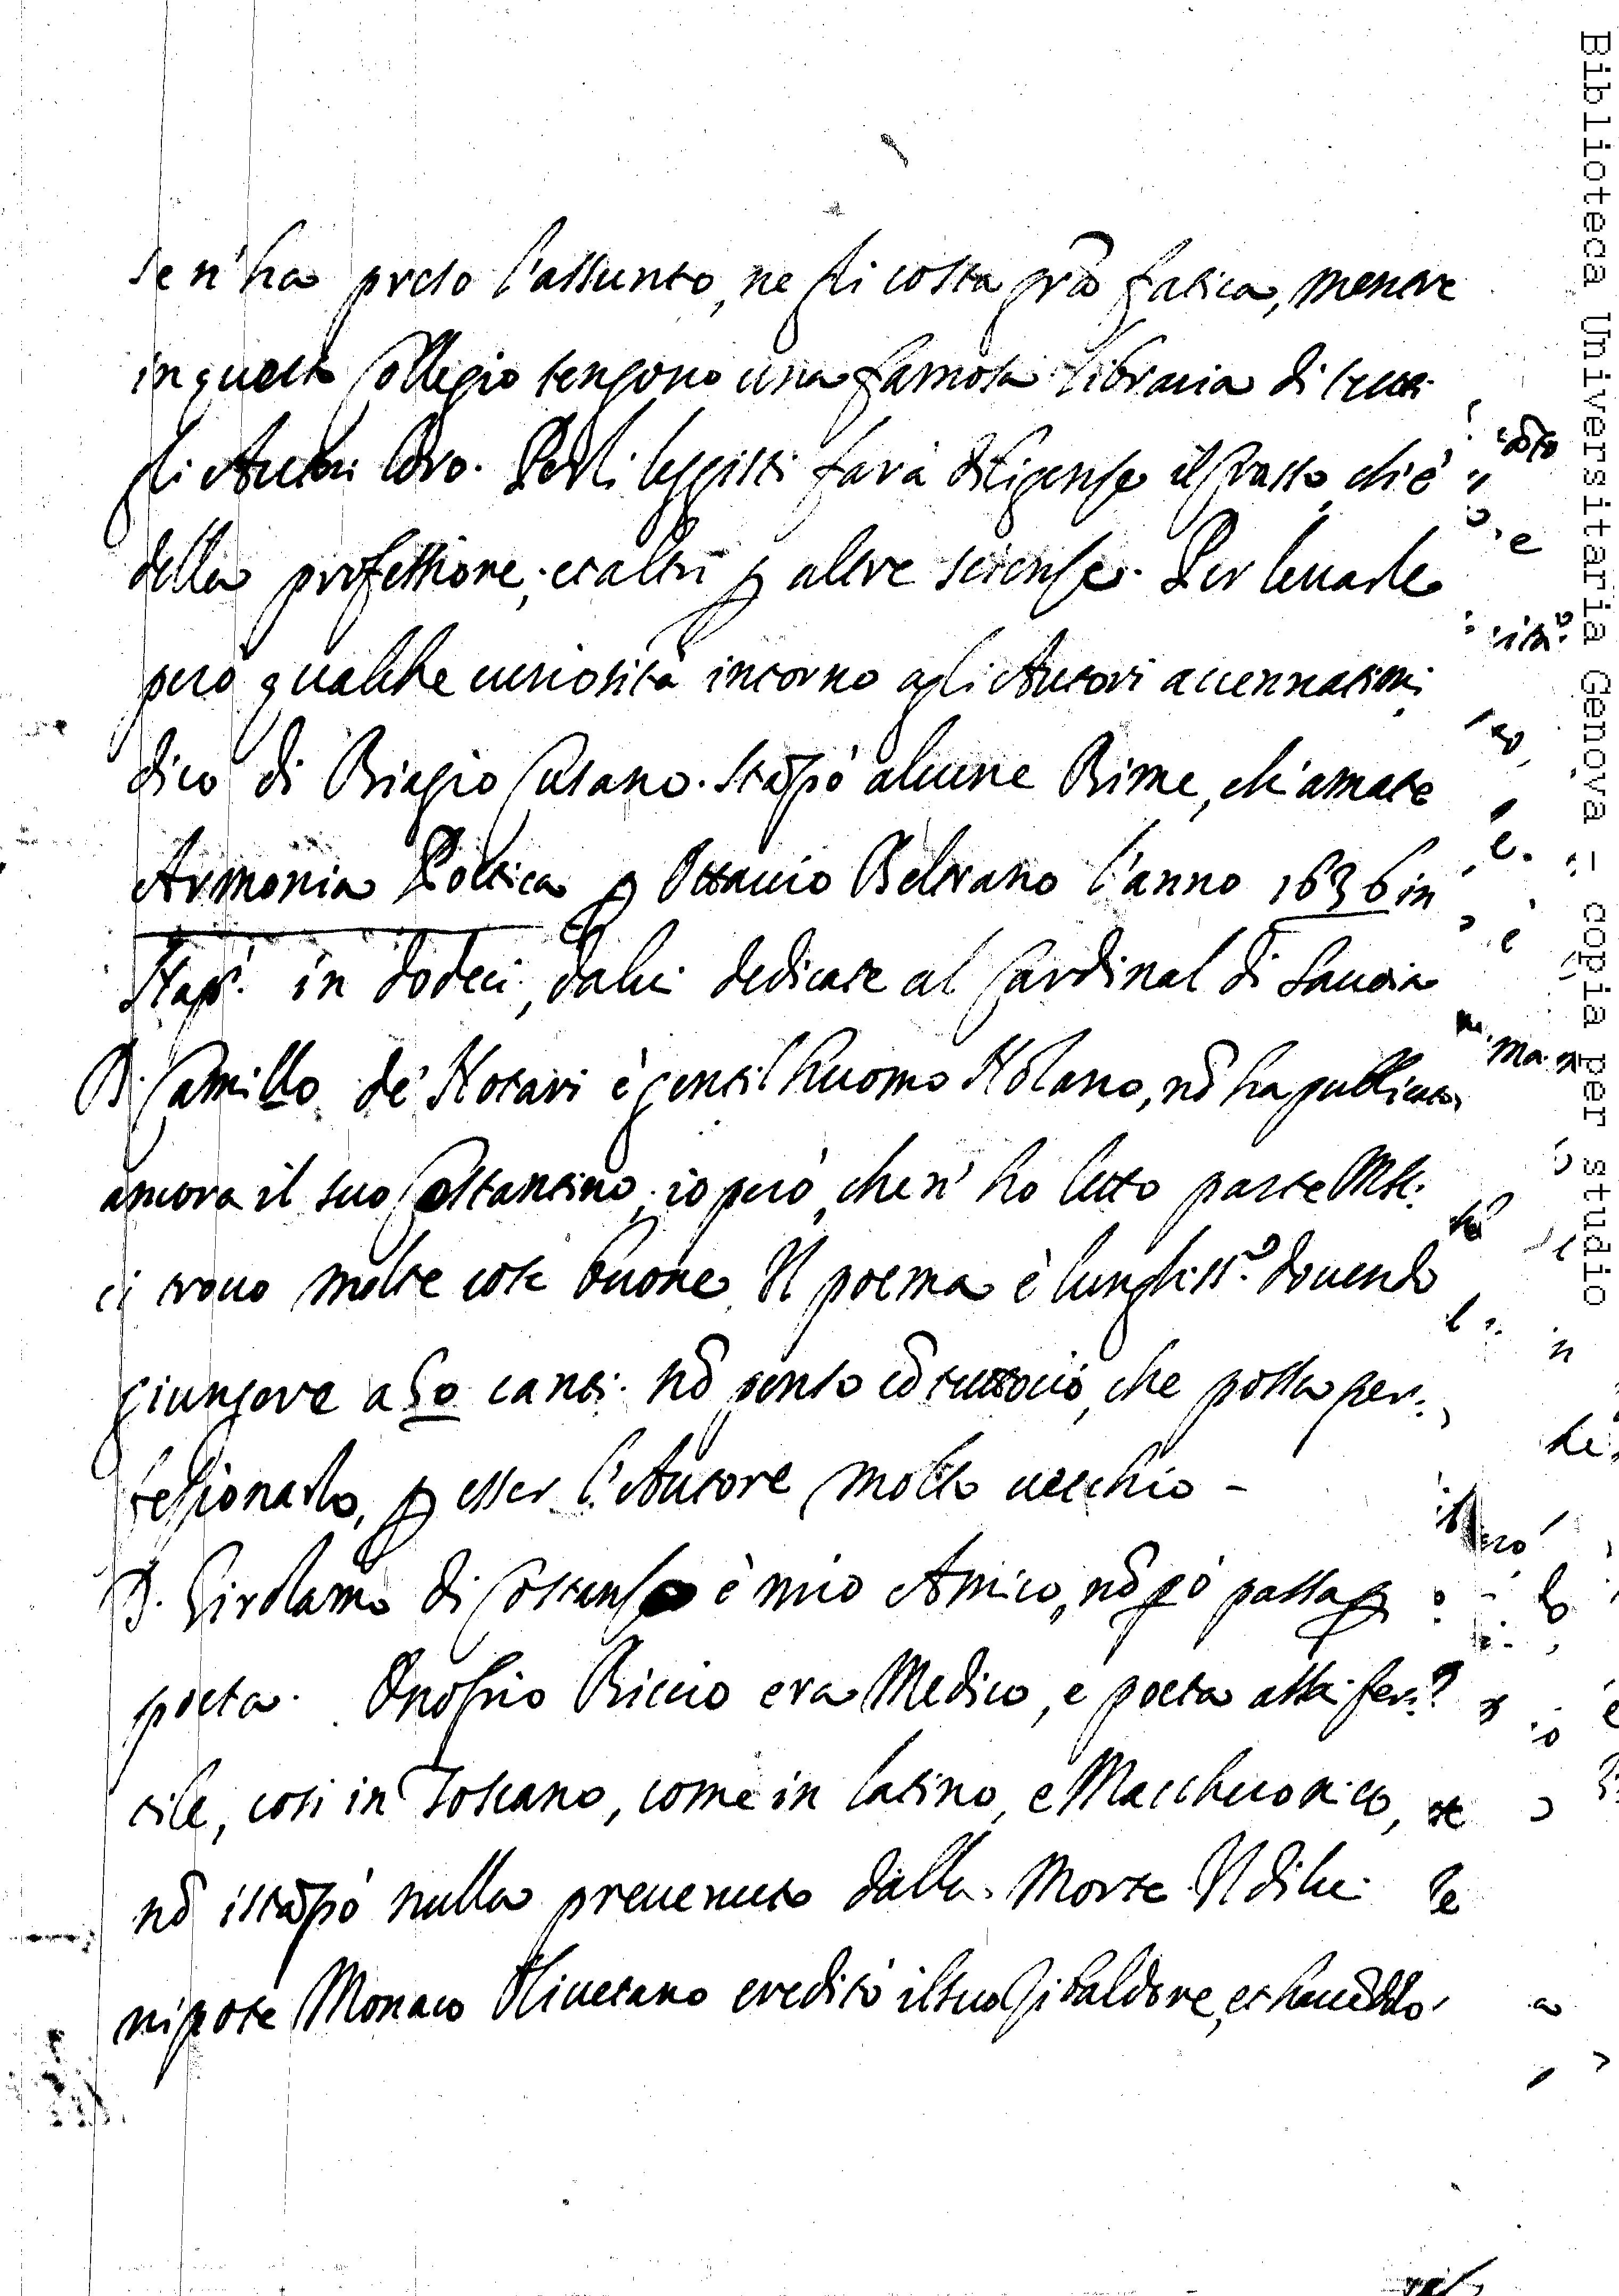 se n'ha preso l'assunto, ne gli costa grã fatica, mentre
in questo Collegio tengono una famosa libraria di tutti
gli Autori loro. Per li leggisti farà diligenze il Grasso, ch'è
della professione, et altri ꝑ altre scienze. Per levarle
però qualche curiosità intorno agli Autori accennatimi
dico di Biagio Cusano. Stãpò alcune Rime, chiamate
Armonia Poetica ꝑ Ottavio Beltrano l'anno 1636 in
Nap.i in dodeci, da lui dedicate al Cardinal di Savoia
D. Camillo de' Notari è gentilhuomo Nolano, nõ ha publicato
ancora il suo Costantino, io però, che n' ho letto parte Ms.
ci trovo molte cose buone. Il poema è lunghiss.o dovendo
giungere a 50 canti. nõ penso cõ tuttociò, che possa per:
fettionarlo, ꝑ esser l'Autore molto vecchio -
D. Girolamo di Costanzo è mio Amico, nõ ꝑò passa ꝑ
poeta. Onofrio Riccio era Medico, e poeta assai fer:
tile, così in Toscano, come in latino, e Maccheronico,
nõ istãpò nulla prevenuto dalla Morte. Il di lui
nipote Monaco Olivetano ereditò il suo Zibaldone, et havẽdolo
Biblioteca Universitaria Genova - copia per studio